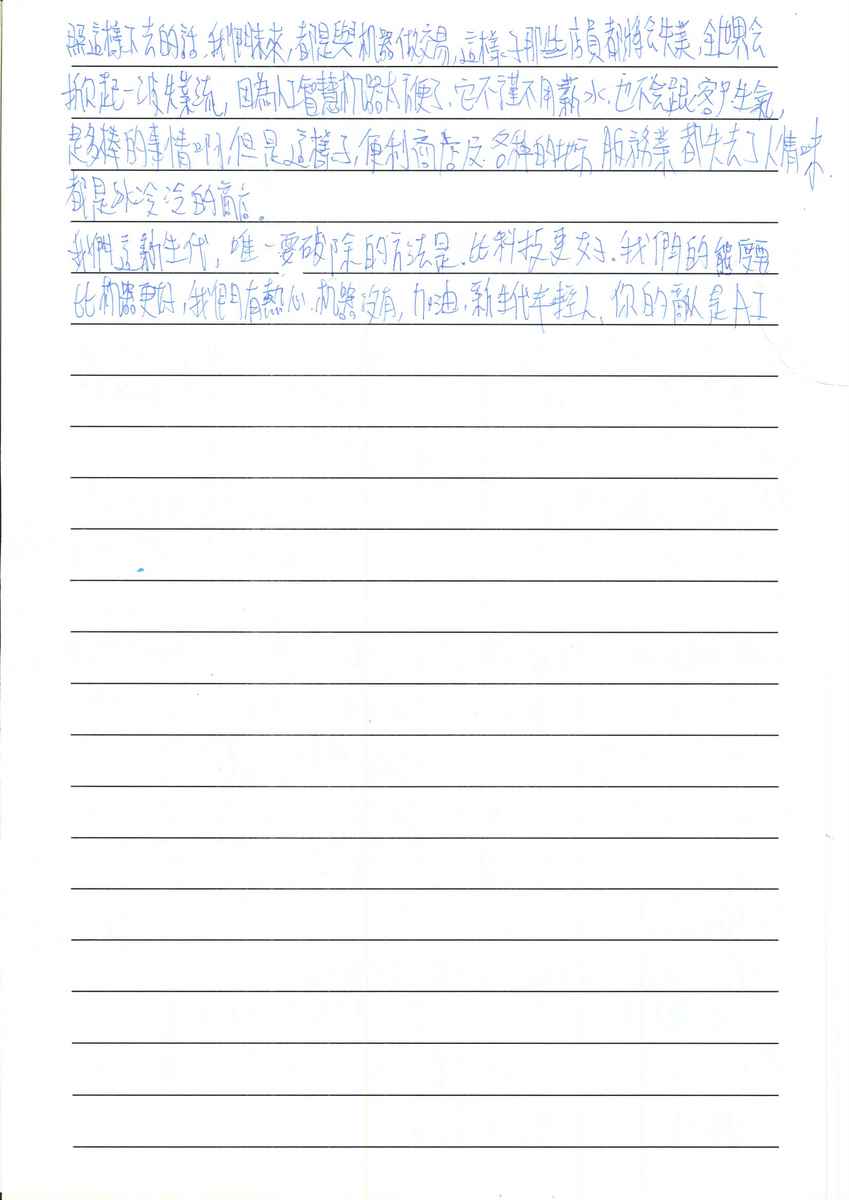 照這樣下去的話,我們未來,都是與机器做交易,這樣子那些店員都將会失業,全世界会
掀起一波失業流,因為人工智慧机器太方便了,它不僅不用薪水,也不会跟客户生氣,
是多棒的事情啊,但是這樣子,便利商店及各种的地方 服務業都失去了人情味,
都是冰冷冷的商店。
我們這新生代,唯一要破除的方法是,比科技更好,我們的態度要
比机器更好,我們有熱心,机器没有,加油,新生代年輕人,你的敵人是AI